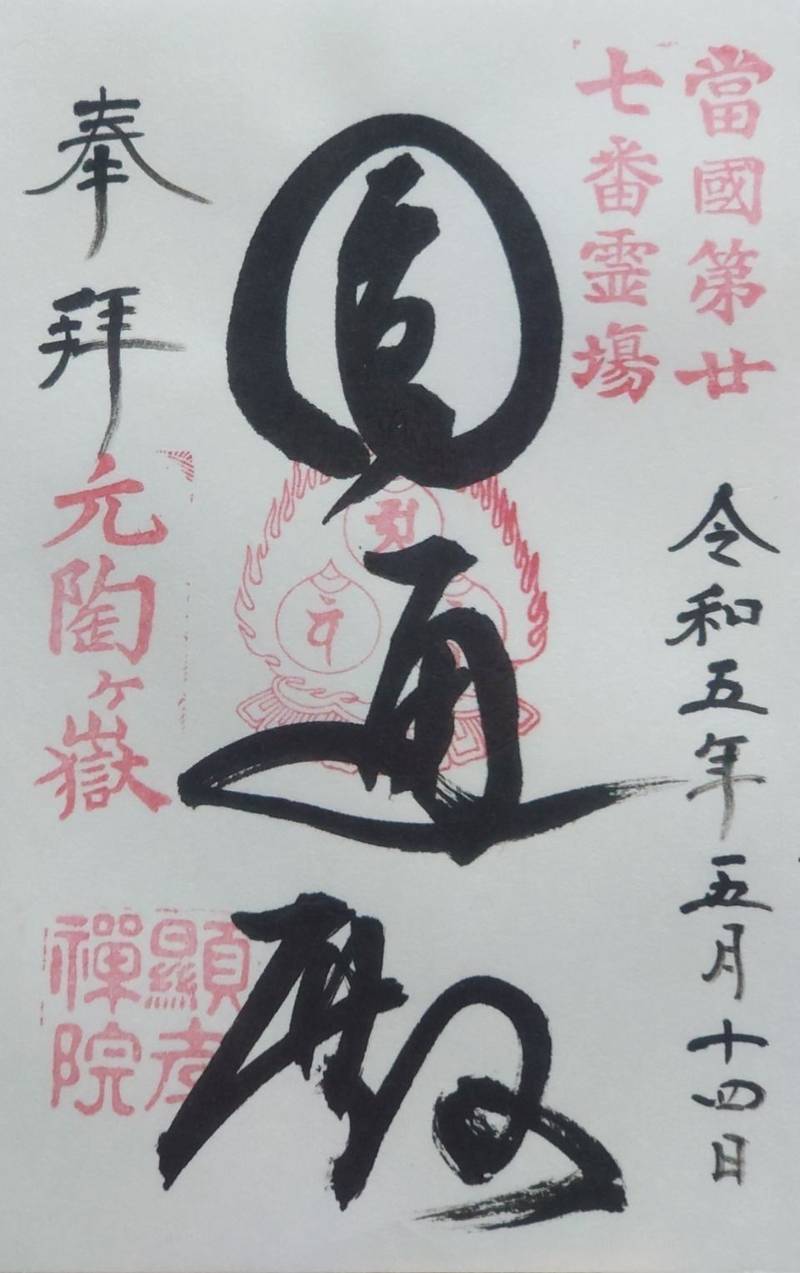 當國第廿
七番霊場
令和五年五月十四日
圓通殿
奉拜
元陶ヶ嶽
顯孝
禪院